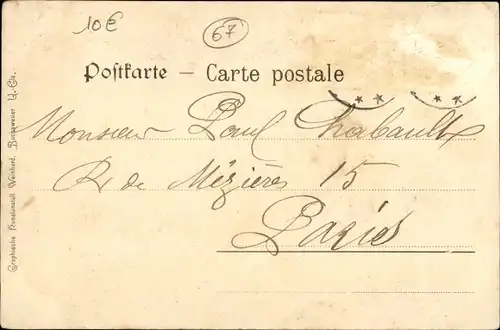 10€
67
Postkarte – Carte postale
Monsieur Paul Chabault
R. de Mézières 15
Paris
Graphische Kunstanstalt Weinhard, Barbarweiler U.-Els.